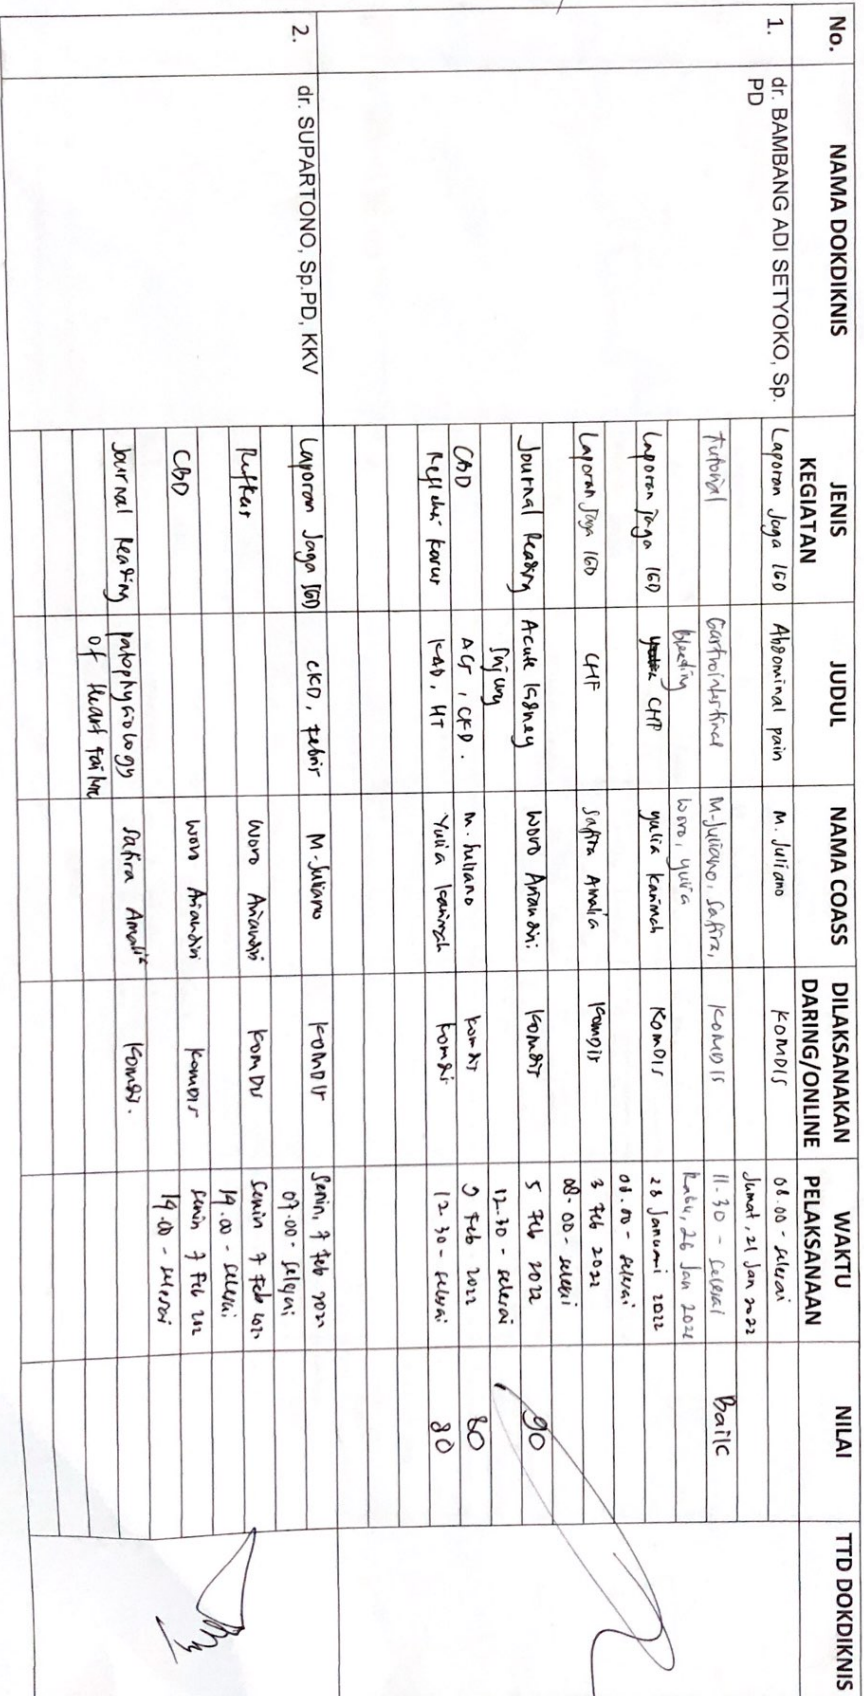 No. NAMA DOKDIKNIS JENIS KEGIATAN JUDUL NAMA COASS DILAKSANAKAN DARING/ONLINE WAKTU PELAKSANAAN NILAI TTD DOKDIKNIS
1. dr. BAMBANG ADI SETYOKO, Sp. PD
Laporan Jaga IGD Abdominal pain M. Juliano KOMDIS 08.00 - selesai
Jumat, 21 Jan 2022
Tutorial Gastrointestinal M. Juliano, Safira, KOMDIS 11.30 - selesai Baik
Bleeding Woro, Yulia Rabu, 26 Jan 2022
Laporan jaga IGD CHF Yulia Karimah KOMDIS 28 Januari 2022
08.00 - selesai
Laporan Jaga IGD CHF Safira Amalia Komdis 3 Feb 2022
08.00 - selesai
Journal Reading Acute Kidney Woro Ariandini Komdis 5 Feb 2022 90
Injury 12.30 - selesai
CBD ACS, CKD. M. Juliano Komdis 9 Feb 2022 80
Refleksi Kasus KAD, HT Yulia Karimah Komdis 12.30 - selesai 80
2. dr. SUPARTONO, Sp.PD, KKV
Laporan Jaga IGD CKD, Febris M. Juliano KOMDIS Senin, 7 Feb 2022
07.00 - selesai
Refkas Woro Ariandini KOMDIS Senin 7 Feb 202
19.00 - selesai
CBD Woro Ariandini KOMDIS Senin 7 Feb 202
19.00 - selesai
Journal Reading Patophysiology Safira Amalia Komdis.
of Heart Failure